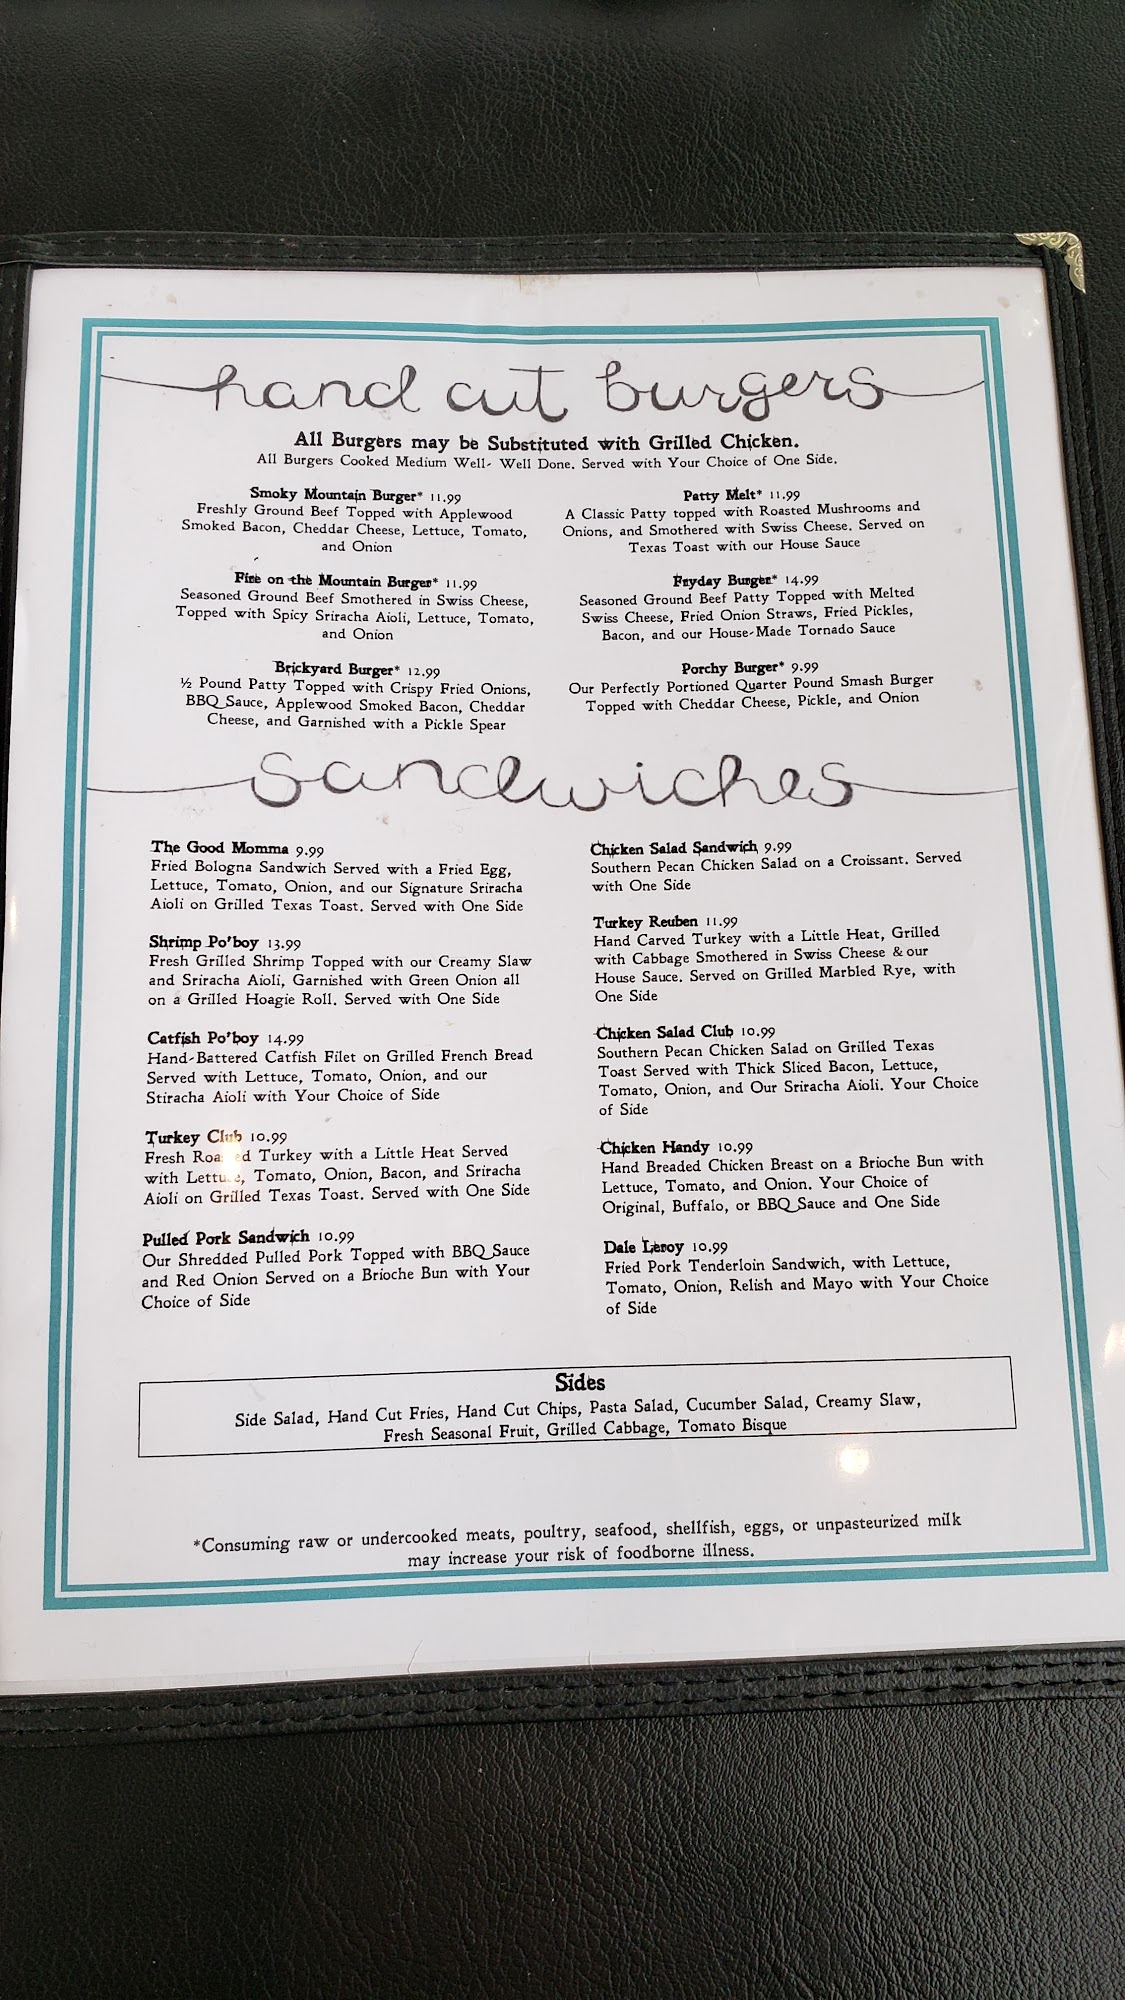 hand cut burgers
All Burgers may be Substituted with Grilled Chicken.
All Burgers Cooked Medium Well- Well Done. Served with Your Choice of One Side.
Smoky Mountain Burger* 11.99
Freshly Ground Beef Topped with Applewood
Smoked Bacon, Cheddar Cheese, Lettuce, Tomato,
and Onion
Fire on the Mountain Burger* 11.99
Seasoned Ground Beef Smothered in Swiss Cheese,
Topped with Spicy Sriracha Aioli, Lettuce, Tomato,
and Onion
Brickyard Burger* 12.99
½ Pound Patty Topped with Crispy Fried Onions,
BBQ Sauce, Applewood Smoked Bacon, Cheddar
Cheese, and Garnished with a Pickle Spear
Patty Melt* 11.99
A Classic Patty topped with Roasted Mushrooms and
Onions, and Smothered with Swiss Cheese. Served on
Texas Toast with our House Sauce
Fryday Burger* 14.99
Seasoned Ground Beef Patty Topped with Melted
Swiss Cheese, Fried Onion Straws, Fried Pickles,
Bacon, and our House-Made Tornado Sauce
Porchy Burger* 9.99
Our Perfectly Portioned Quarter Pound Smash Burger
Topped with Cheddar Cheese, Pickle, and Onion
sandwiches
The Good Momma 9.99
Fried Bologna Sandwich Served with a Fried Egg,
Lettuce, Tomato, Onion, and our Signature Sriracha
Aioli on Grilled Texas Toast. Served with One Side
Shrimp Po'boy 13.99
Fresh Grilled Shrimp Topped with our Creamy Slaw
and Sriracha Aioli, Garnished with Green Onion all
on a Grilled Hoagie Roll. Served with One Side
Catfish Po'boy 14.99
Hand-Battered Catfish Filet on Grilled French Bread
Served with Lettuce, Tomato, Onion, and our
Stiracha Aioli with Your Choice of Side
Turkey Club 10.99
Fresh Roasted Turkey with a Little Heat Served
with Lettuce, Tomato, Onion, Bacon, and Sriracha
Aioli on Grilled Texas Toast. Served with One Side
Pulled Pork Sandwich 10.99
Our Shredded Pulled Pork Topped with BBQ Sauce
and Red Onion Served on a Brioche Bun with Your
Choice of Side
Chicken Salad Sandwich 9.99
Southern Pecan Chicken Salad on a Croissant. Served
with One Side
Turkey Reuben 11.99
Hand Carved Turkey with a Little Heat, Grilled
with Cabbage Smothered in Swiss Cheese & our
House Sauce. Served on Grilled Marbled Rye, with
One Side
Chicken Salad Club 10.99
Southern Pecan Chicken Salad on Grilled Texas
Toast Served with Thick Sliced Bacon, Lettuce,
Tomato, Onion, and Our Sriracha Aioli. Your Choice
of Side
Chicken Handy 10.99
Hand Breaded Chicken Breast on a Brioche Bun with
Lettuce, Tomato, and Onion. Your Choice of
Original, Buffalo, or BBQ Sauce and One Side
Dale Leroy 10.99
Fried Pork Tenderloin Sandwich, with Lettuce,
Tomato, Onion, Relish and Mayo with Your Choice
of Side
Sides
Side Salad, Hand Cut Fries, Hand Cut Chips, Pasta Salad, Cucumber Salad, Creamy Slaw,
Fresh Seasonal Fruit, Grilled Cabbage, Tomato Bisque
*Consuming raw or undercooked meats, poultry, seafood, shellfish, eggs, or unpasteurized milk
may increase your risk of foodborne illness.